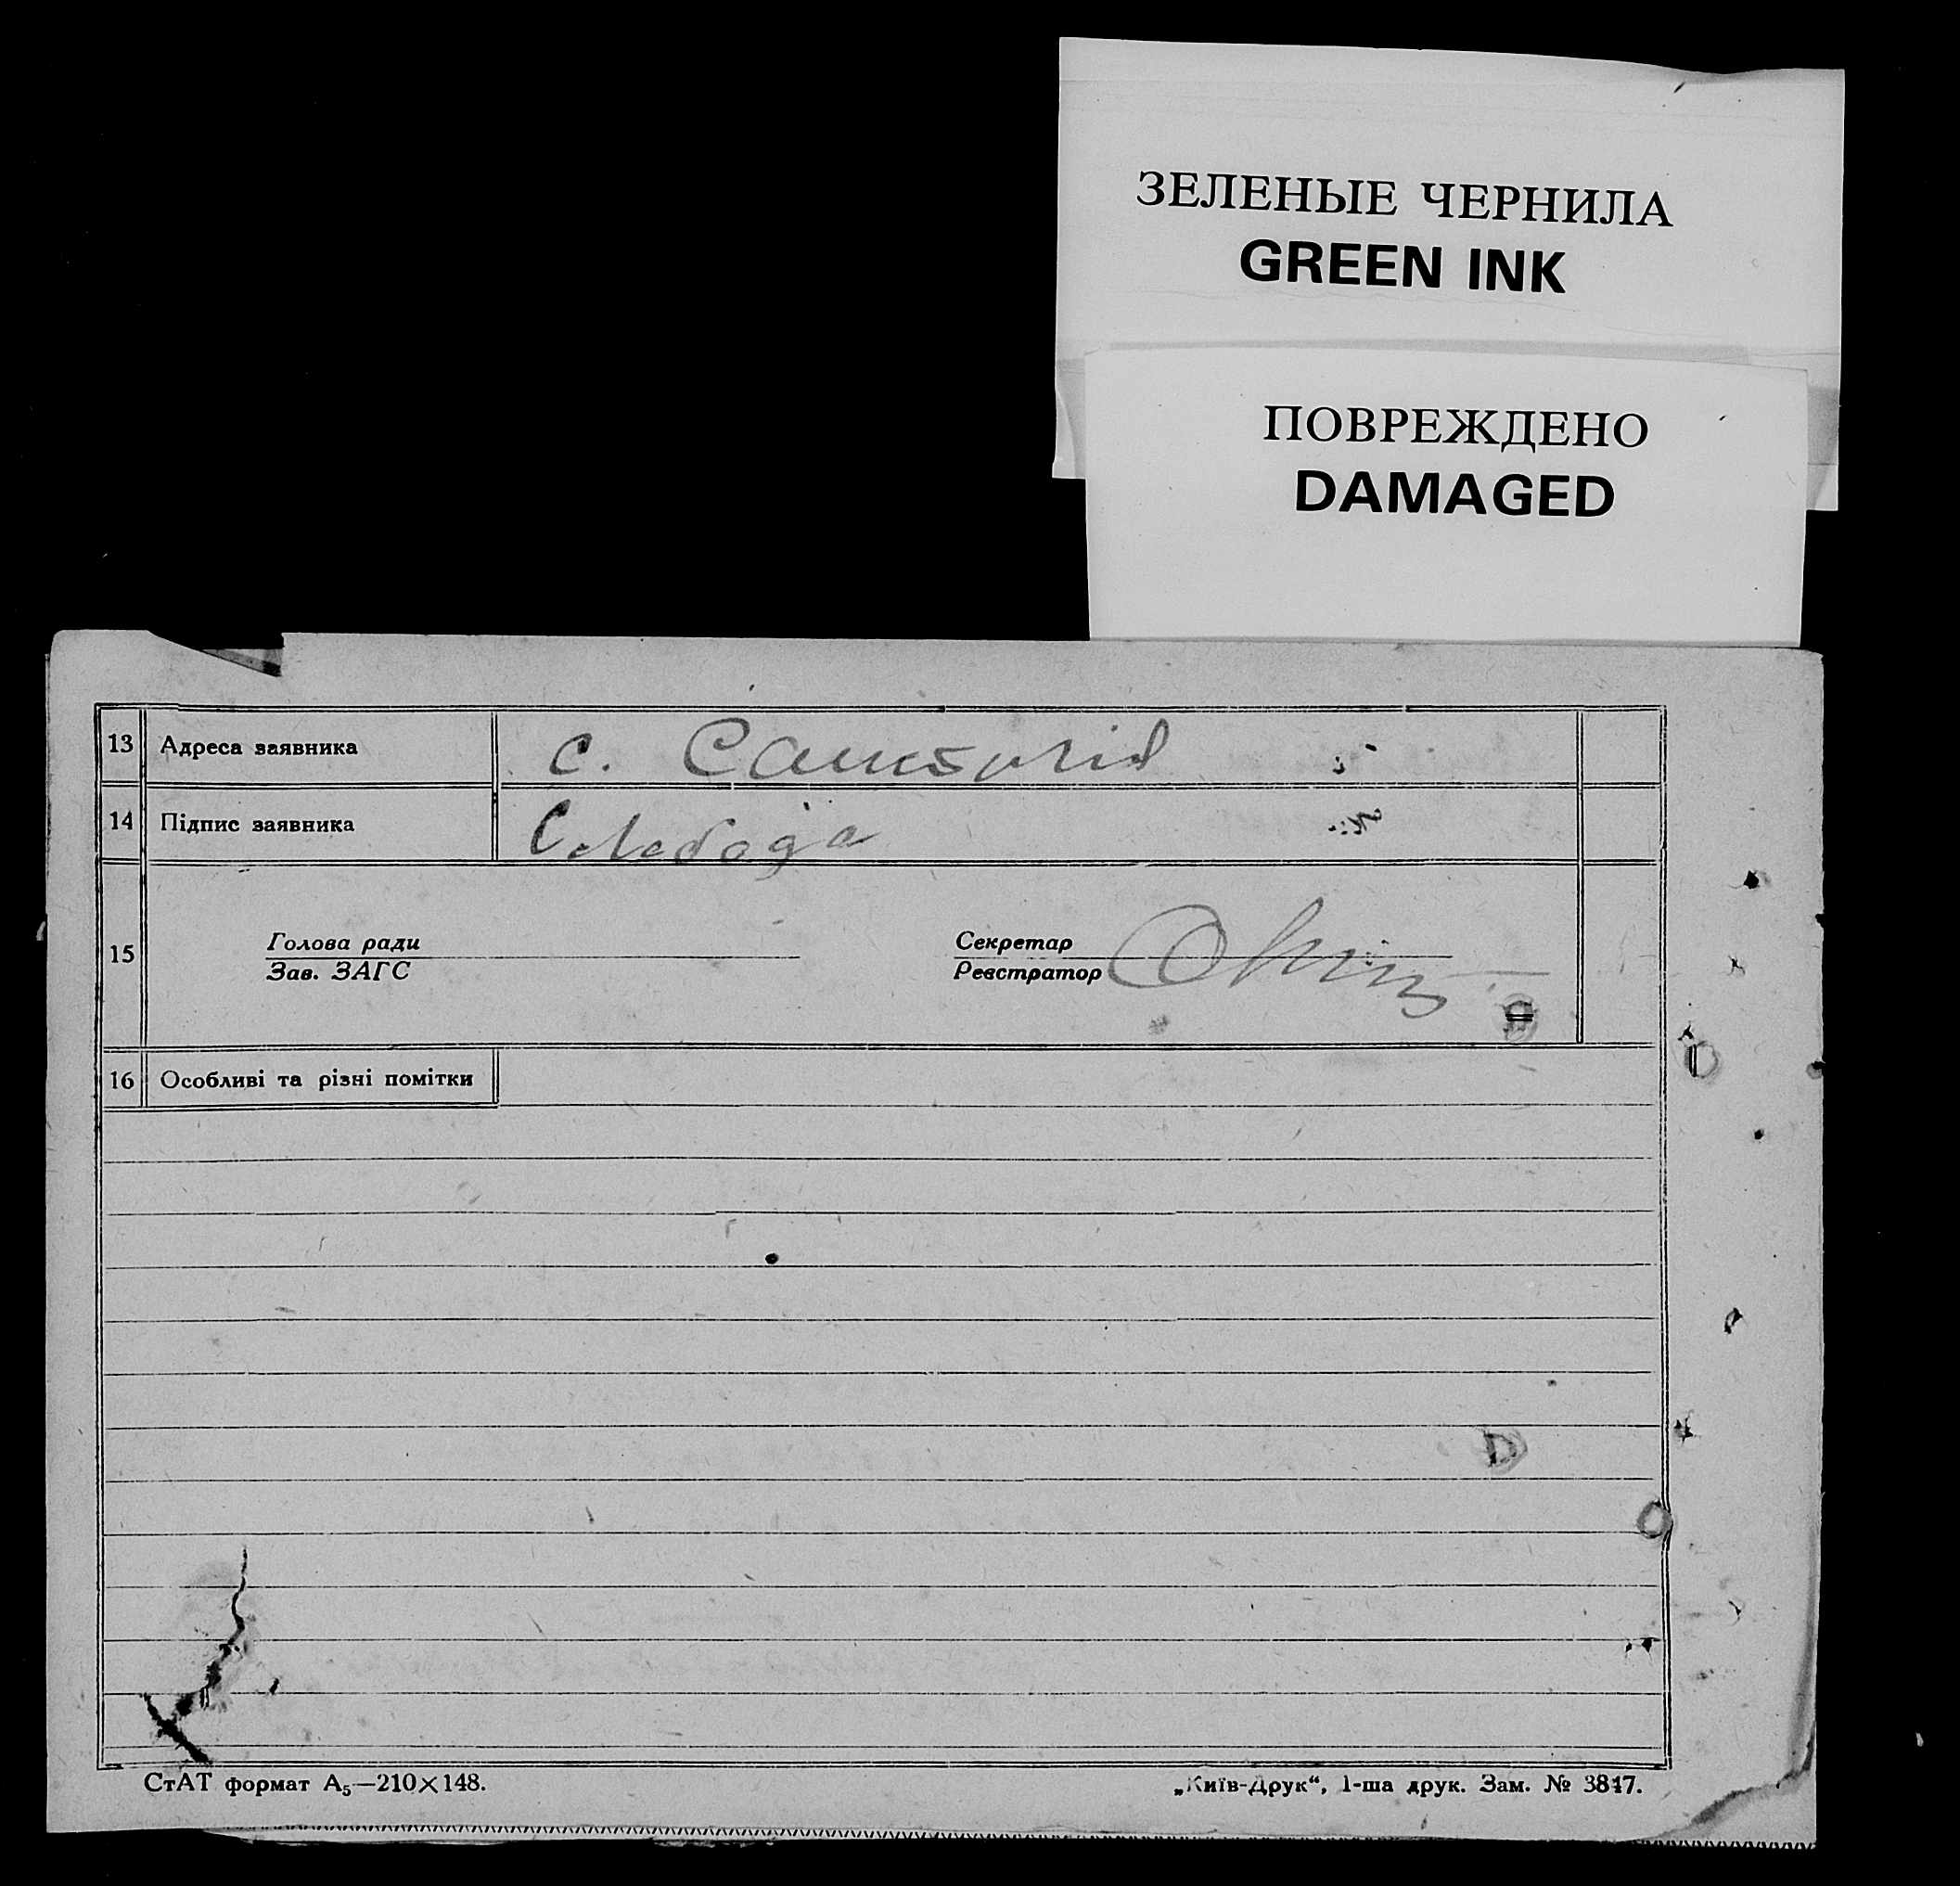 ЗЕЛЕНЫЕ ЧЕРНИЛА
GREEN INK
ПОВРЕЖДЕНО
DAMAGED
13 Адреса заявника с.
14 Підпис заявника Слободя
15 Голова ради Секретар
Зав. ЗАГС Реєстратор
16 Особливі та різні помітки
СтАТ формат А₅—210×148. „Київ-Друк“, 1-ша друк. Зам. № 3817.